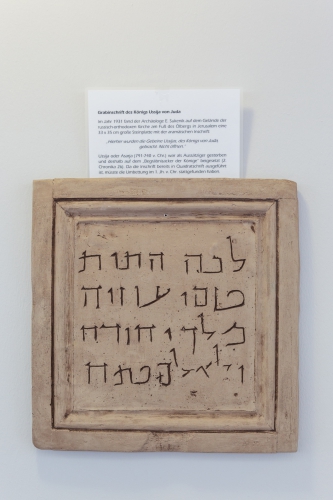 Grabinschrift des Königs Ussija von Juda
Im Jahr 1931 fand der Archäologe E. Sukenik auf dem Gelände der
russisch-orthodoxen Kirche am Fuß des Ölbergs in Jerusalem eine
große Steinplatte mit der aramäischen Inschrift:
„Hierher wurden die Gebeine Usijas, des Königs von Juda,
gebracht. Nicht öffnen."
oder war als Aussätziger gestorben
und deshalb auf dem „Begräbnisacker der Könige" beigesetzt (2.
26). Da die Inschrift bereits in Quadratschrift ausgeführt
ist, müsste die Umbettung im 1. Jh. v. Chr. stattgefunden haben.
לכה התית
טמי עוזיה
מלך יהודה
ולא למפתח